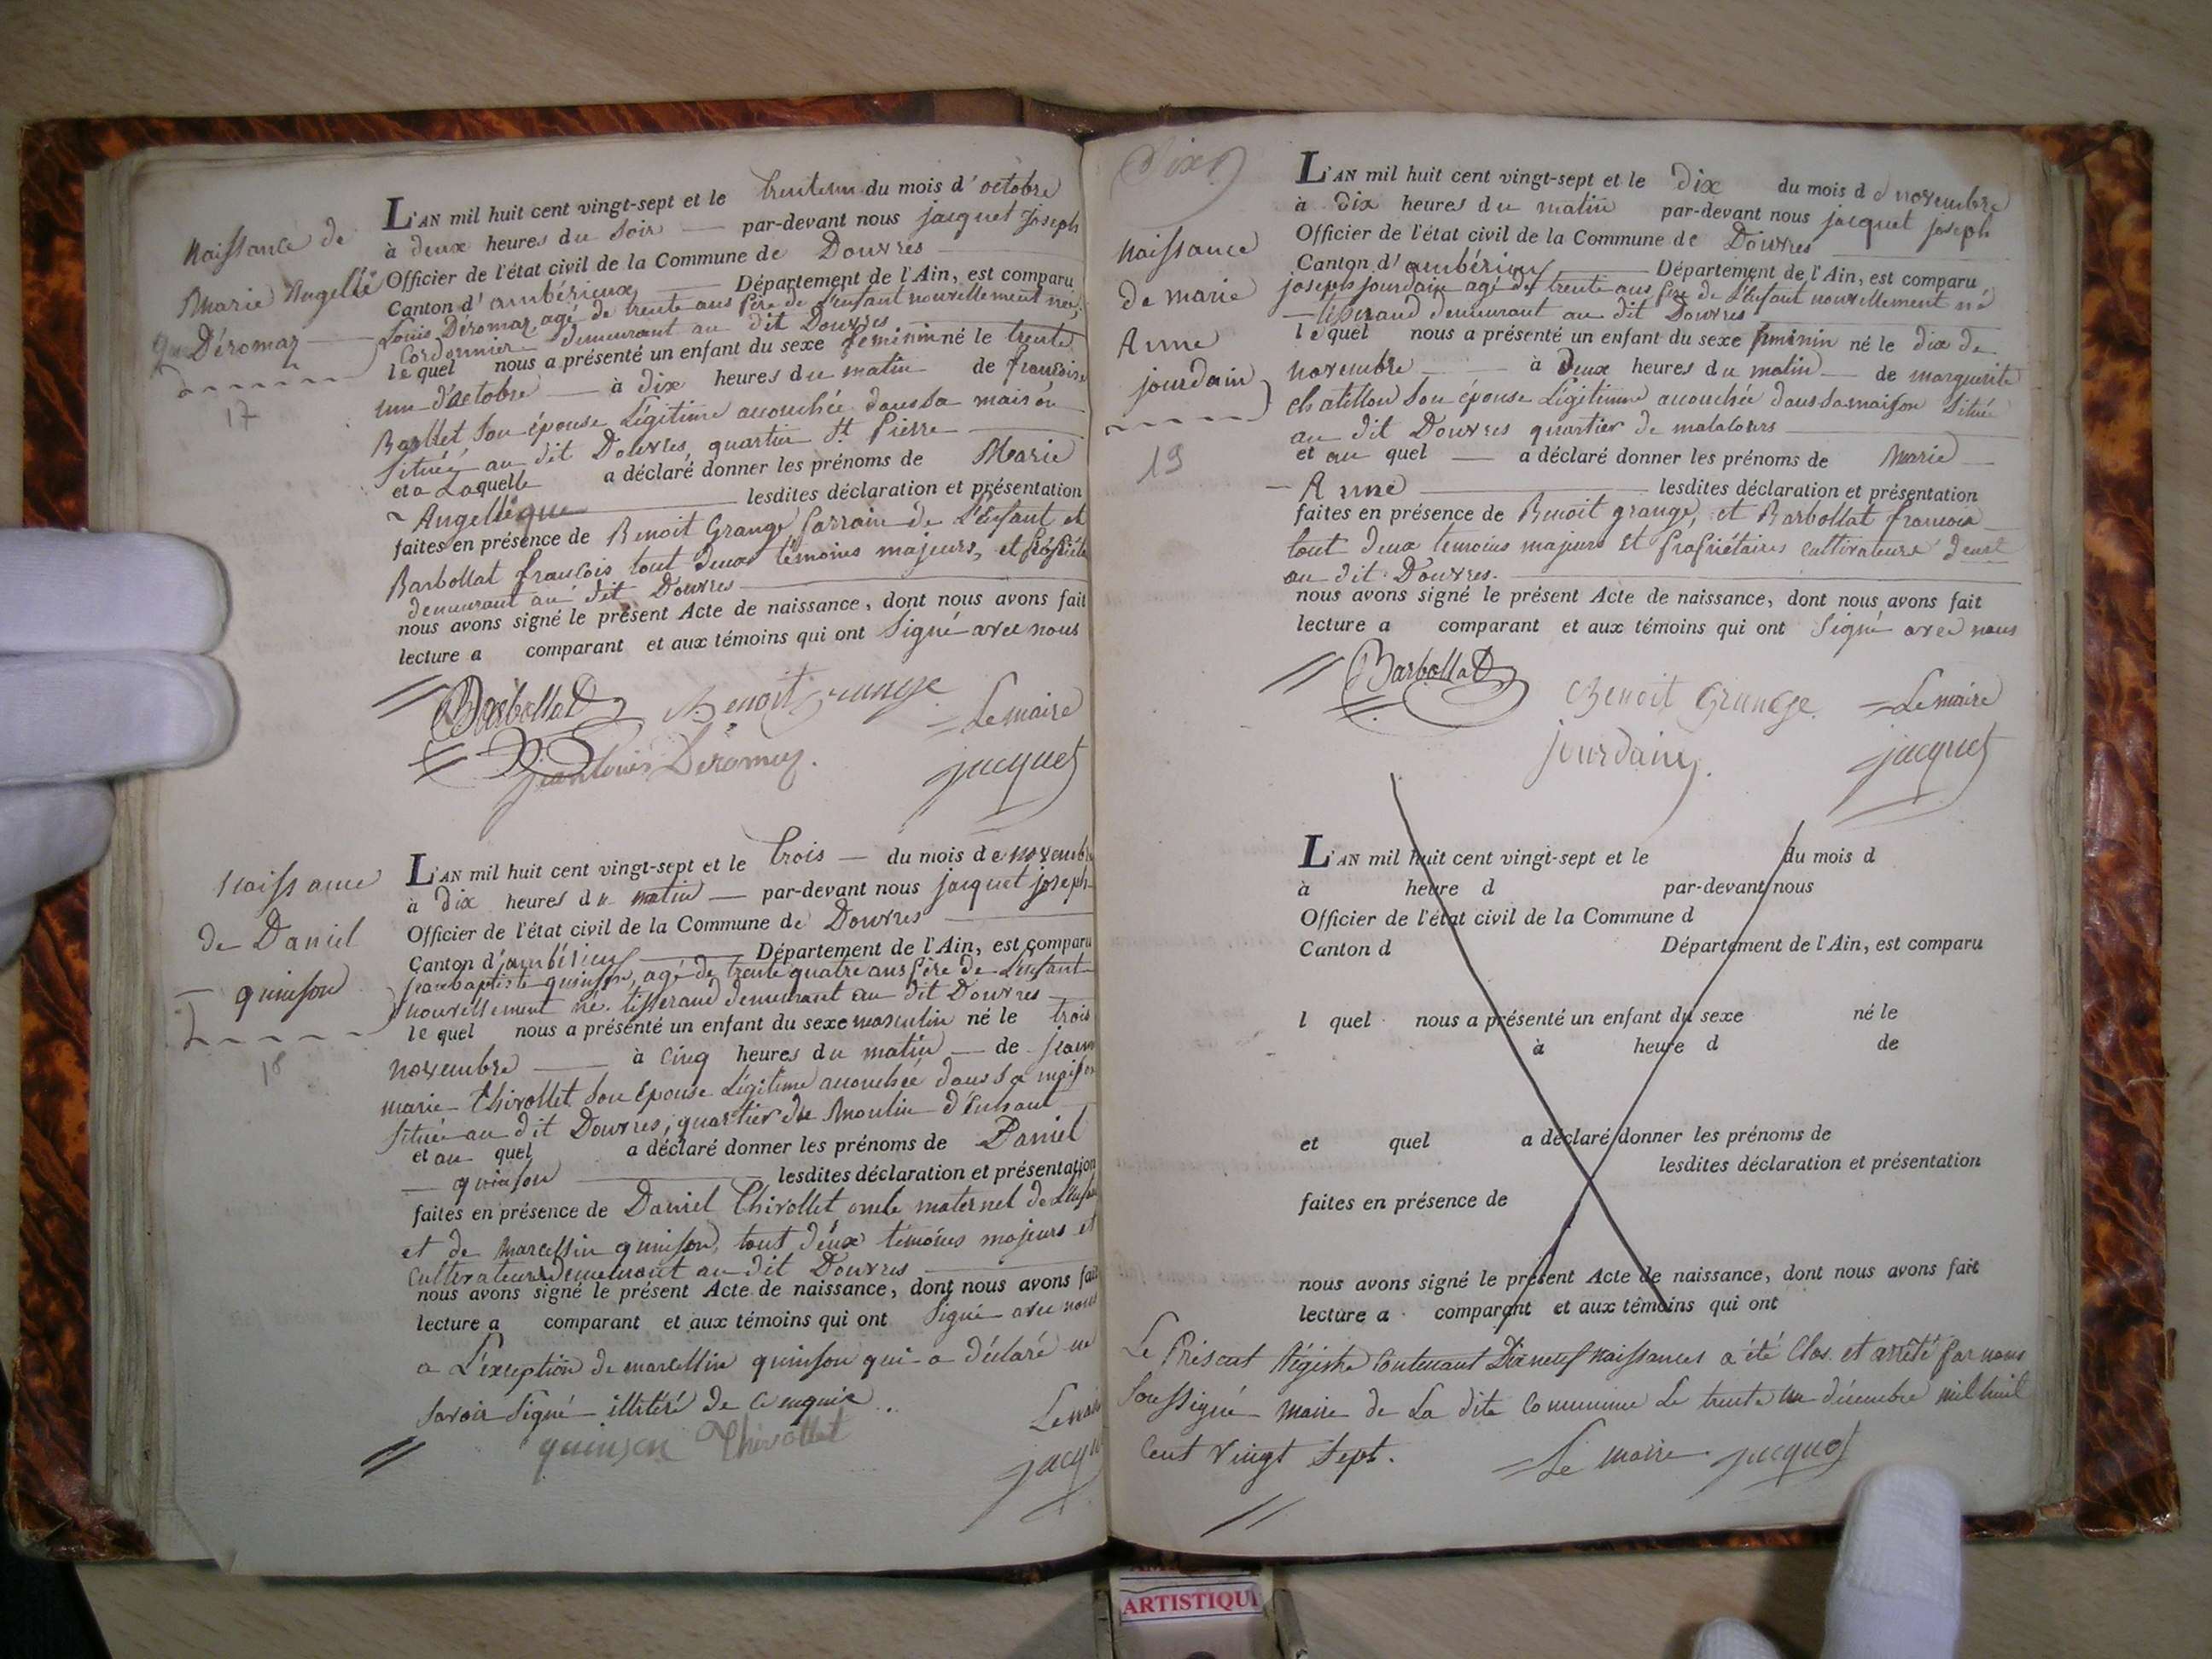 Naissance de
Marie Angelli
que Déromas
17
L'AN mil huit cent vingt-sept et le trenteun du mois d'octobre
à deux heures du soir par-devant nous jacquet joseph
Officier de l'état civil de la Commune de Douvres
Canton d'ambérieux Département de l'Ain, est comparu
Louis Déromas agé de trente ans père de L'enfant nouvellement née,
Cordonnier demeurant au dit Douvres
le quel nous a présenté un enfant du sexe feminin né le trente
un d'octobre à dix heures du matin de francoise
son épouse Légitime accouchée dans sa maison
Située au dit Douvres, quartier St Pierre
et a Laquelle a déclaré donner les prénoms de Marie
Angellique lesdites déclaration et présentation
faites en présence de Benoit Grange parrain de L'enfant et
Barbollat francois tout deux témoins majeurs, et
demeurant au dit Douvres
nous avons signé le présent Acte de naissance, dont nous avons fait
lecture a comparant et aux témoins qui ont Signé avec nous
Barbollat Benoit Grange Le maire
jean Louis Déromas. jacquet
Naissance
de Daniel
quinson
18
L'AN mil huit cent vingt-sept et le trois du mois de novembre
à dix heures du matin par-devant nous jacquet joseph
Officier de l'état civil de la Commune de Douvres
Canton d'ambérieux Département de l'Ain, est comparu
jean baptiste quinson, agé de trente quatre ans père de L'enfant
nouvellement né. tisserand demeurant au dit Douvres
le quel nous a présenté un enfant du sexe masculin né le trois
novembre à cinq heures du matin de jeanne
marie Thivollet son épouse Légitime accouchée dans sa maison
située au dit Douvres, quartier du Moulin
et au quel a déclaré donner les prénoms de Daniel
quinson lesdites déclaration et présentation
faites en présence de Daniel Thivollet oncle maternel de L'enfant
et de Marcellin quinson, tout deux témoins majeurs et
Cultivateurs demeurant au dit Douvres
nous avons signé le présent Acte de naissance, dont nous avons fait
lecture a comparant et aux témoins qui ont Signé avec nous
a L'exception de marcellin quinson qui a déclaré ne
savoir Signé illitéré de ce enquis.
Le maire
quinson Thivollet
jacquet
Dix
Naissance
de marie
Anne
jourdain
19
L'AN mil huit cent vingt-sept et le dix du mois de novembre
à dix heures du matin par-devant nous jacquet joseph
Officier de l'état civil de la Commune de Douvres
Canton d'ambérieux Département de l'Ain, est comparu
joseph jourdain agé de trente ans père de L'enfant nouvellement né
tisserand demeurant au dit Douvres
le quel nous a présenté un enfant du sexe feminin né le dix de
novembre à deux heures du matin de marguerite
chatillon son épouse Légitime accouchée dans sa maison située
au dit Douvres quartier de
et au quel a déclaré donner les prénoms de Marie
Anne lesdites déclaration et présentation
faites en présence de Benoit grange, et Barbollat francois
tout deux temoins majeurs et propriétaires cultivateurs
au dit Douvres.
nous avons signé le présent Acte de naissance, dont nous avons fait
lecture a comparant et aux témoins qui ont Signé avec nous
Barbollat Benoit Grange Le maire
jourdain. jacquet
L'AN mil huit cent vingt-sept et le du mois d
à heure d par-devant nous
Officier de l'état civil de la Commune d
Canton d Département de l'Ain, est comparu
l quel nous a présenté un enfant du sexe né le
à heure d de
et quel a déclaré donner les prénoms de
lesdites déclaration et présentation
faites en présence de
nous avons signé le présent Acte de naissance, dont nous avons fait
lecture a comparant et aux témoins qui ont
Le Présent Régistre Contenant Dixneuf naissances a été Clos et arrêté par nous
Soussigné maire de La dite Commune Le trente un décembre mil huit
Cent vingt Sept. Le maire jacquet
ARTISTIQU